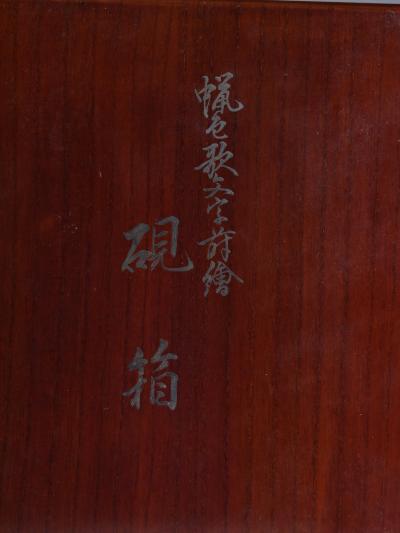 蝋色歌文字蒔繪
硯箱